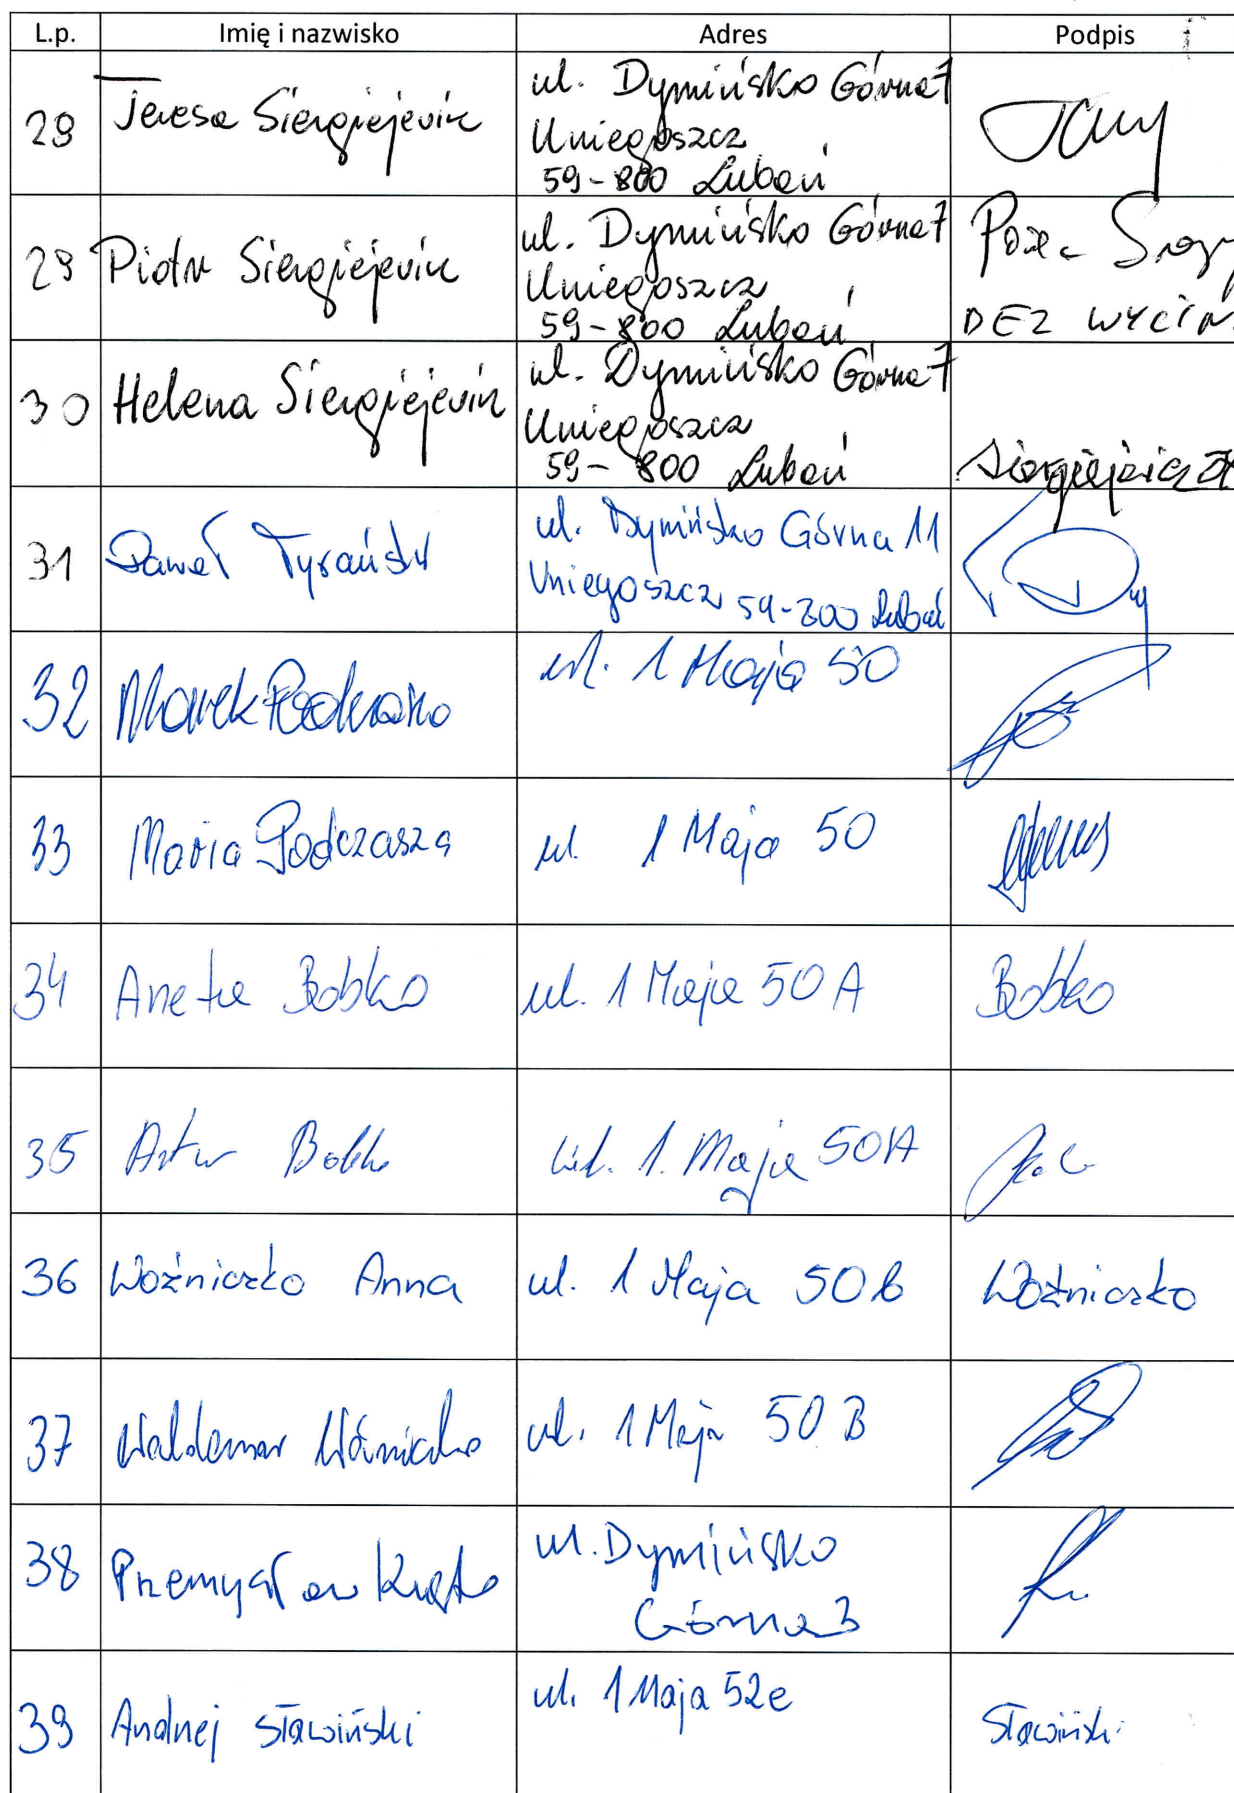 L.p. Imię i nazwisko Adres Podpis
28 Teresa Siergiejewicz ul. Dymińsko Górna 7
Uniegoszcz
59-800 Lubań
29 Piotr Siergiejewicz ul. Dymińsko Górna 7
Uniegoszcz
59-800 Lubań
30 Helena Siergiejewicz ul. Dymińsko Górna 7
Uniegoszcz
59-800 Lubań
31 Paweł Tyrański ul. Dymińsko Górna 11
Uniegoszcz 59-800 Lubań
32 Marek ul. 1 Maja 50
33 Maria Podczasza ul. 1 Maja 50
34 Aneta Bobko ul. 1 Maja 50A Bobko
35 Artur Bobko ul. 1. Maja 50A
36 Woźniczko Anna ul. 1 Maja 50b Woźniczko
37 Waldemar Woźniczko ul. 1 Maja 50B
38 Przemysław ul. Dymińsko
Górna 3
39 Andrzej Sławiński ul. 1 Maja 52e Sławiński